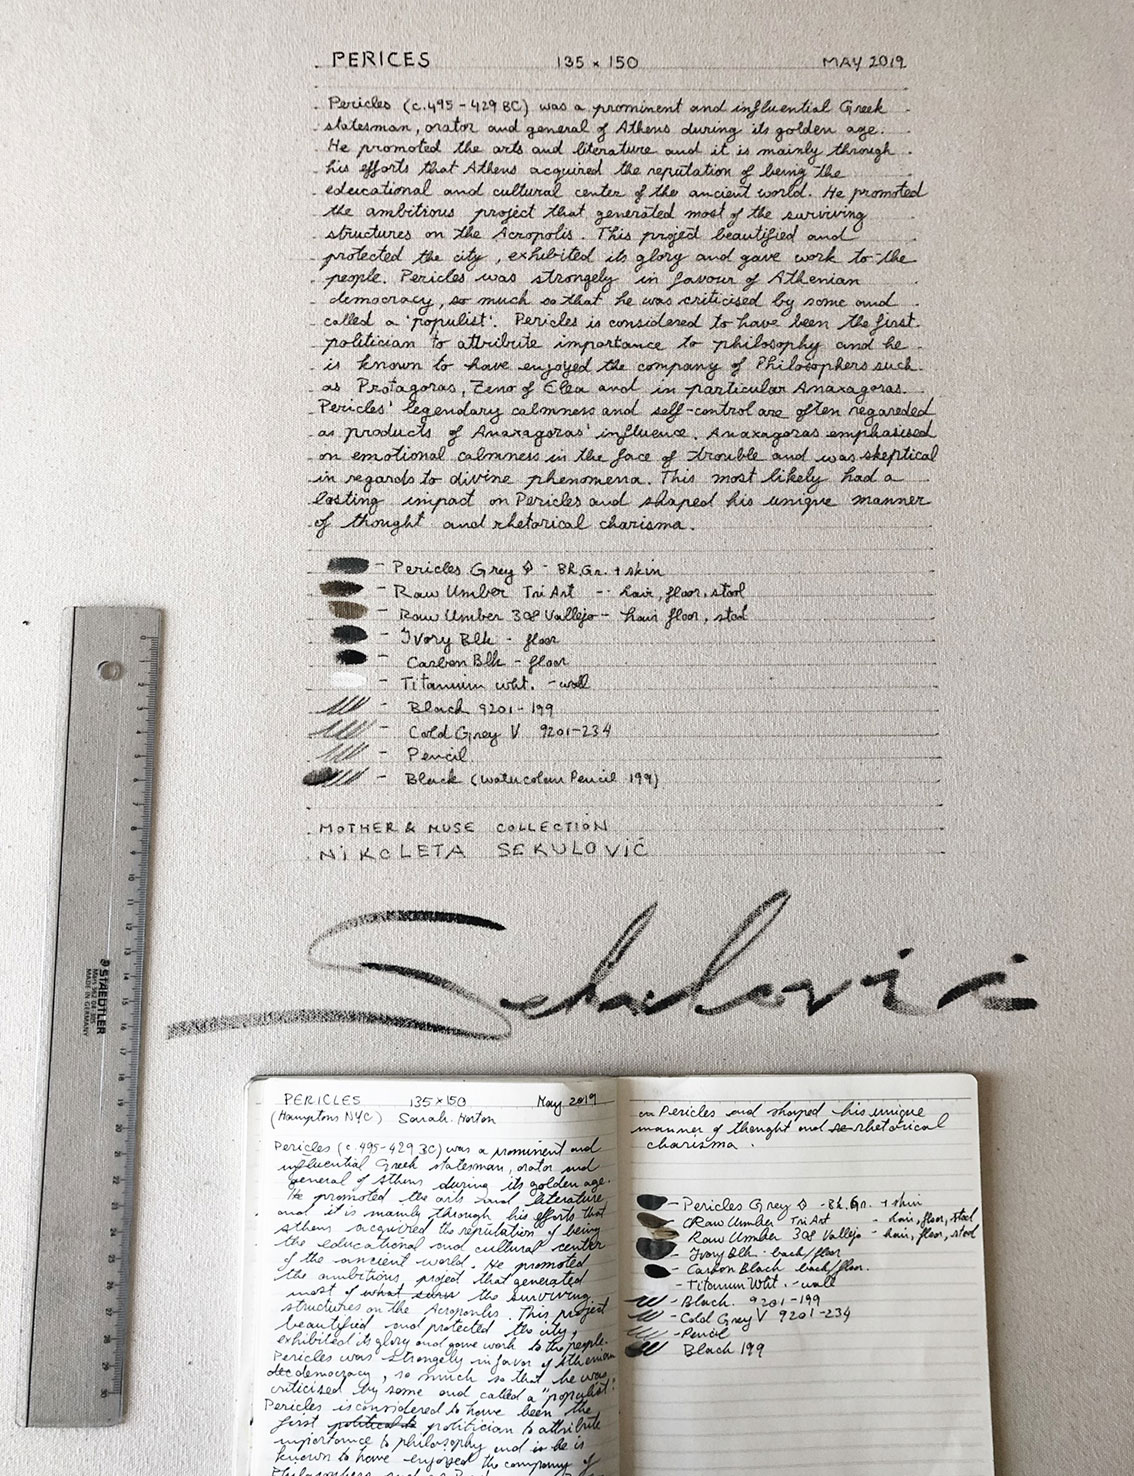 PERICES 135 x 150 MAY 2019
Pericles (c.495-429 BC) was a prominent and influential Greek
statesman, orator and general of Athens during its golden age.
He promoted the arts and literature and it is mainly through
his efforts that Athens acquired the reputation of being the
edeucational and cultural center of the ancient world. He promoted
the ambitious project that generated most of the surviving
structures on the Acropolis. This project beautified and
protected the city, exhibited its glory and gave work to the
people. Pericles was strongely in favour of Athenian
democracy, so much so that he was criticised by some and
called a 'populist'. Pericles is considered to have been the first
politician to attribute importance to philosophy and he
is known to have enjoyed the company of Philosophers such
as Protagoras, Zeno of Elea and in particular Anaxagoras.
Pericles' legendary calmness and self-control are often regareded
as products of Anaxagoras' influence. Anaxagoras emphasised
on emotional calmness in the face of trouble and was skeptical
in regards to divine phenomena. This most likely had a
lasting impact on Pericles and shaped his unique manner
of thought and rhetorical charisma.
- Pericles Grey - BR.Gr. + skin
- Raw Umber Tri Art - hair, floor, stool
- Raw Umber 308 Vallejo - hair floor, stool
- Ivory Blk - floor
- Carbon Blk - floor
- Titanium wht. - wall
- Black 9201-199
- Cold Grey V 9201-234
- Pencil
- Black (Watercolour Pencil 199)
MOTHER & MUSE COLLECTION
NIKOLETA SEKULOVIĆ
Sekulović
STAEDTLER
MADE IN GERMANY
0 1 2 3 4 5 6 7 8 9 10 11 12 13 14 15 16 17 18 19 20 21 22 23 24 25 26 27 28 29 30
PERICLES 135x150 May 2019
(Hamptons NYC) Sarah Horton
Pericles (c.495-429 BC) was a prominent and
influential Greek statesman, orator and
general of Athens during its golden age.
He promoted the arts and literature
and it is mainly through his efforts that
Athens acquired the reputation of being
the educational and cultural center
of the ancient world. He promoted
the ambitious project that generated
most of what the surviving
structures on the Acropolis. This project
beautified and protected the city,
exhibited its glory and gave work to the people.
Pericles was strongely in favor of Athenian
dec democracy, so much so that he was
criticised by some and called a "populist".
Pericles is considered to have been the
first political to politician to attribute
importance to philosophy and is he is
known to have enjoyed the company of
on Pericles and shaped his unique
manner of thought and rhetorical
charisma.
- Pericles Grey - BR.Gr. + skin
- Raw Umber Tri Art - hair, floor, stool
- Raw Umber 308 Vallejo - hair, floor, stool
- Ivory Blk - back/floor
- Carbon Black back/floor.
- Titanium Wht. - wall
- Black 9201-199
- Cold Grey V 9201-234
- Pencil
- Black 199